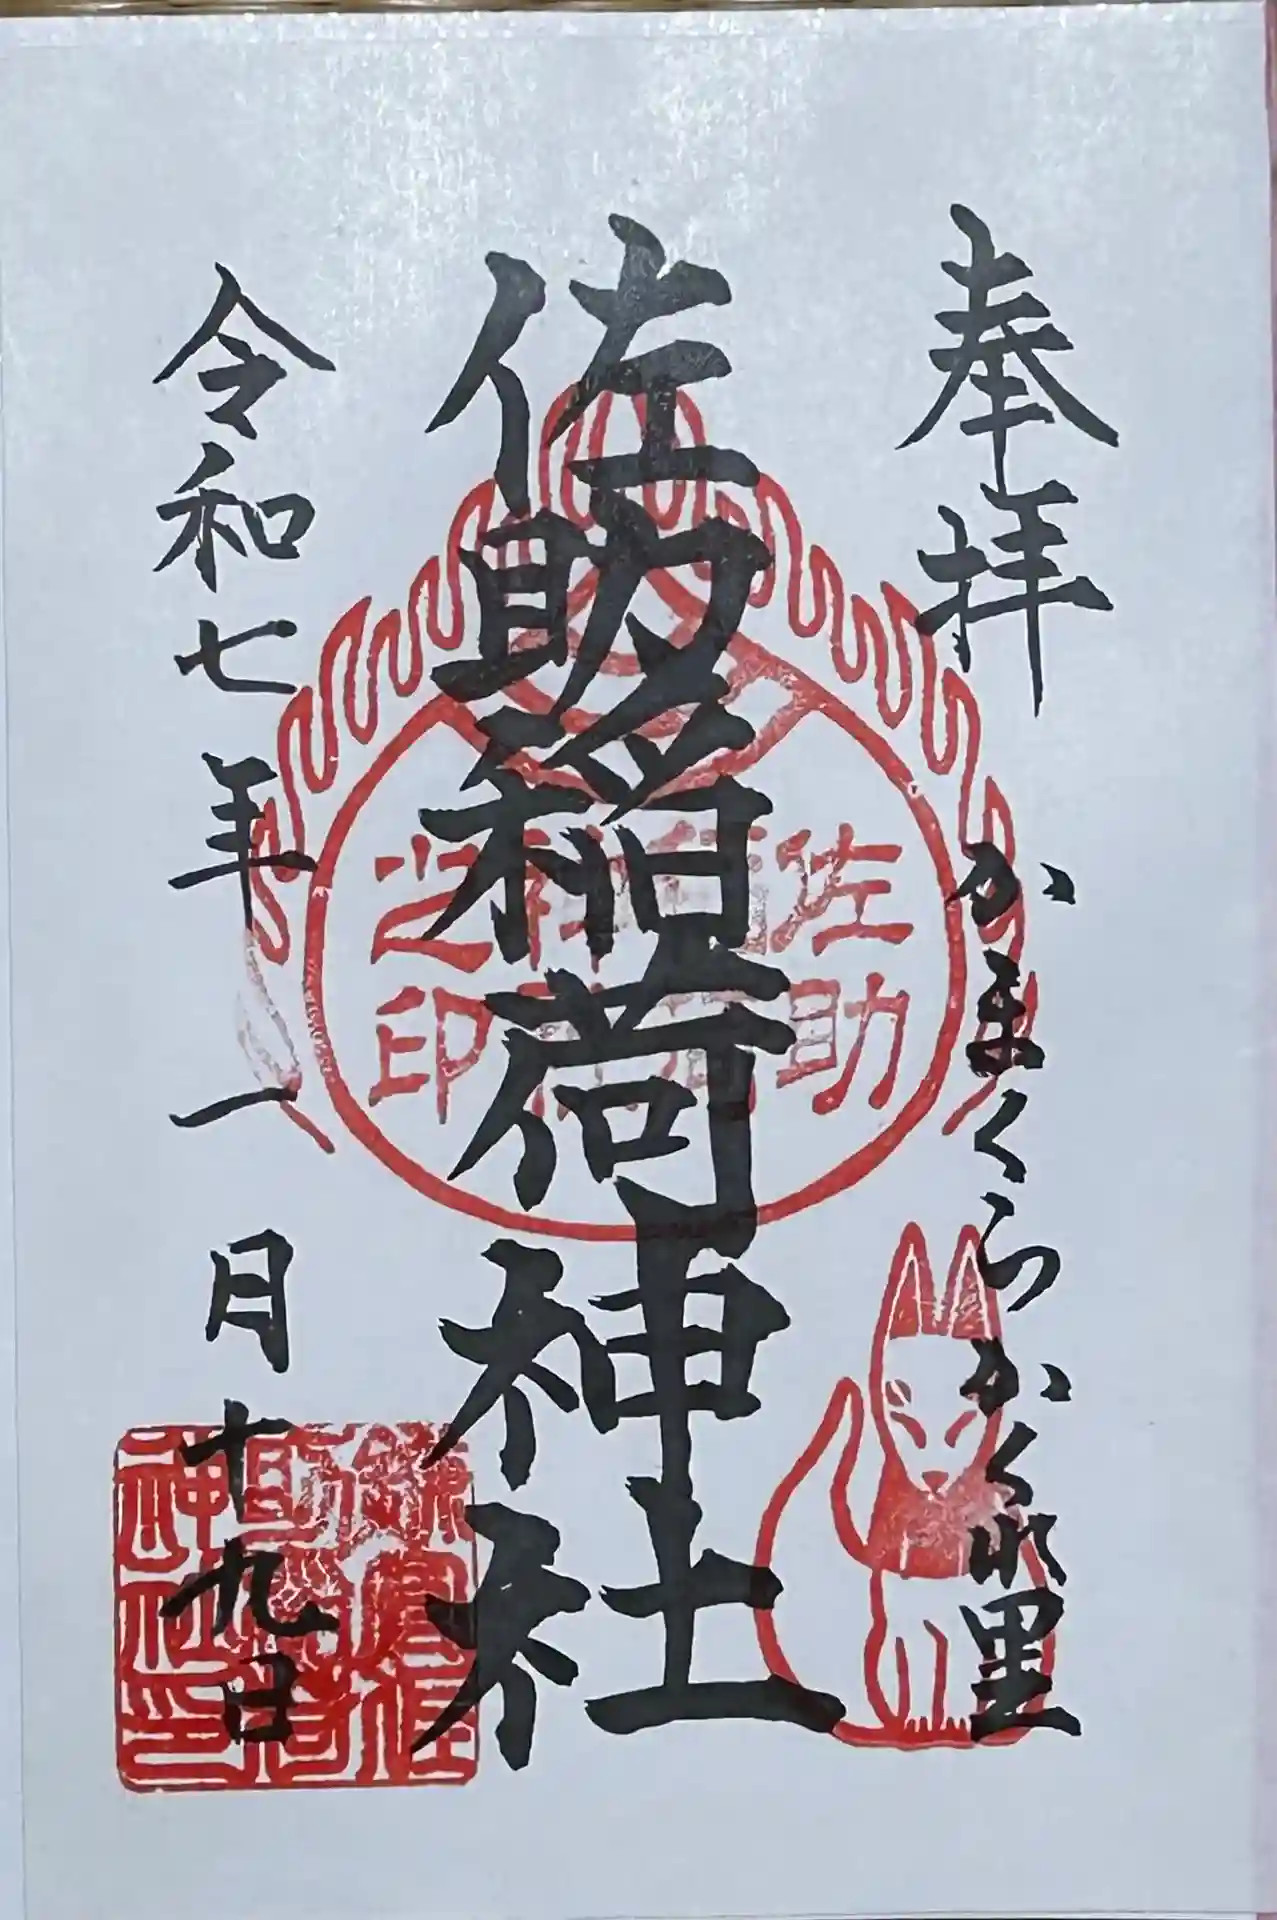 奉拝
かまくらかくれ里
佐助稲荷神社
令和七年一月十九日
佐助稲荷神社之印